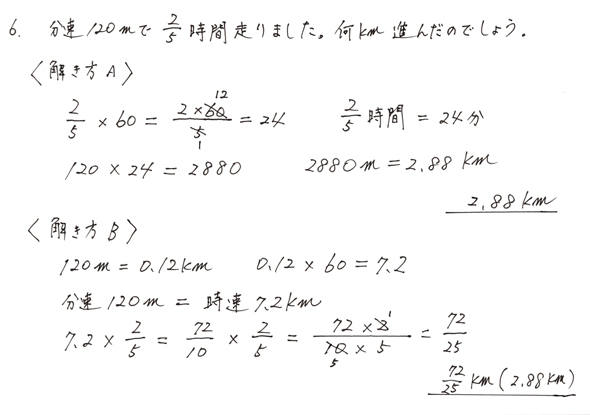 6. 分速120mで 2/5 時間走りました。何km 進んだのでしょう。
〈解き方A〉
2/5 × 60 = (2 × 60)/5 = 24　　2/5 時間 = 24分
12
1
120 × 24 = 2880　　2880m = 2.88 km
2.88 km
〈解き方B〉
120m = 0.12km　　0.12 × 60 = 7.2
分速120m = 時速7.2km
7.2 × 2/5 = 72/10 × 2/5 = (72 × 2)/(10 × 5) = 72/25
1
5
72/25 km (2.88km)